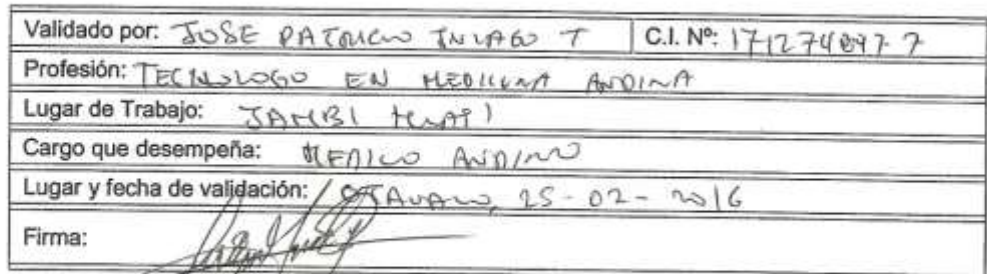 Validado por: JOSE PATRICIO INLAGO T C.I. Nº:
Profesión: TECNOLOGO EN MEDICINA ANDINA
Lugar de Trabajo: JAMBI HUASI
Cargo que desempeña: MEDICO ANDINO
Lugar y fecha de validación: OTAVALO, 25-02-2016
Firma: